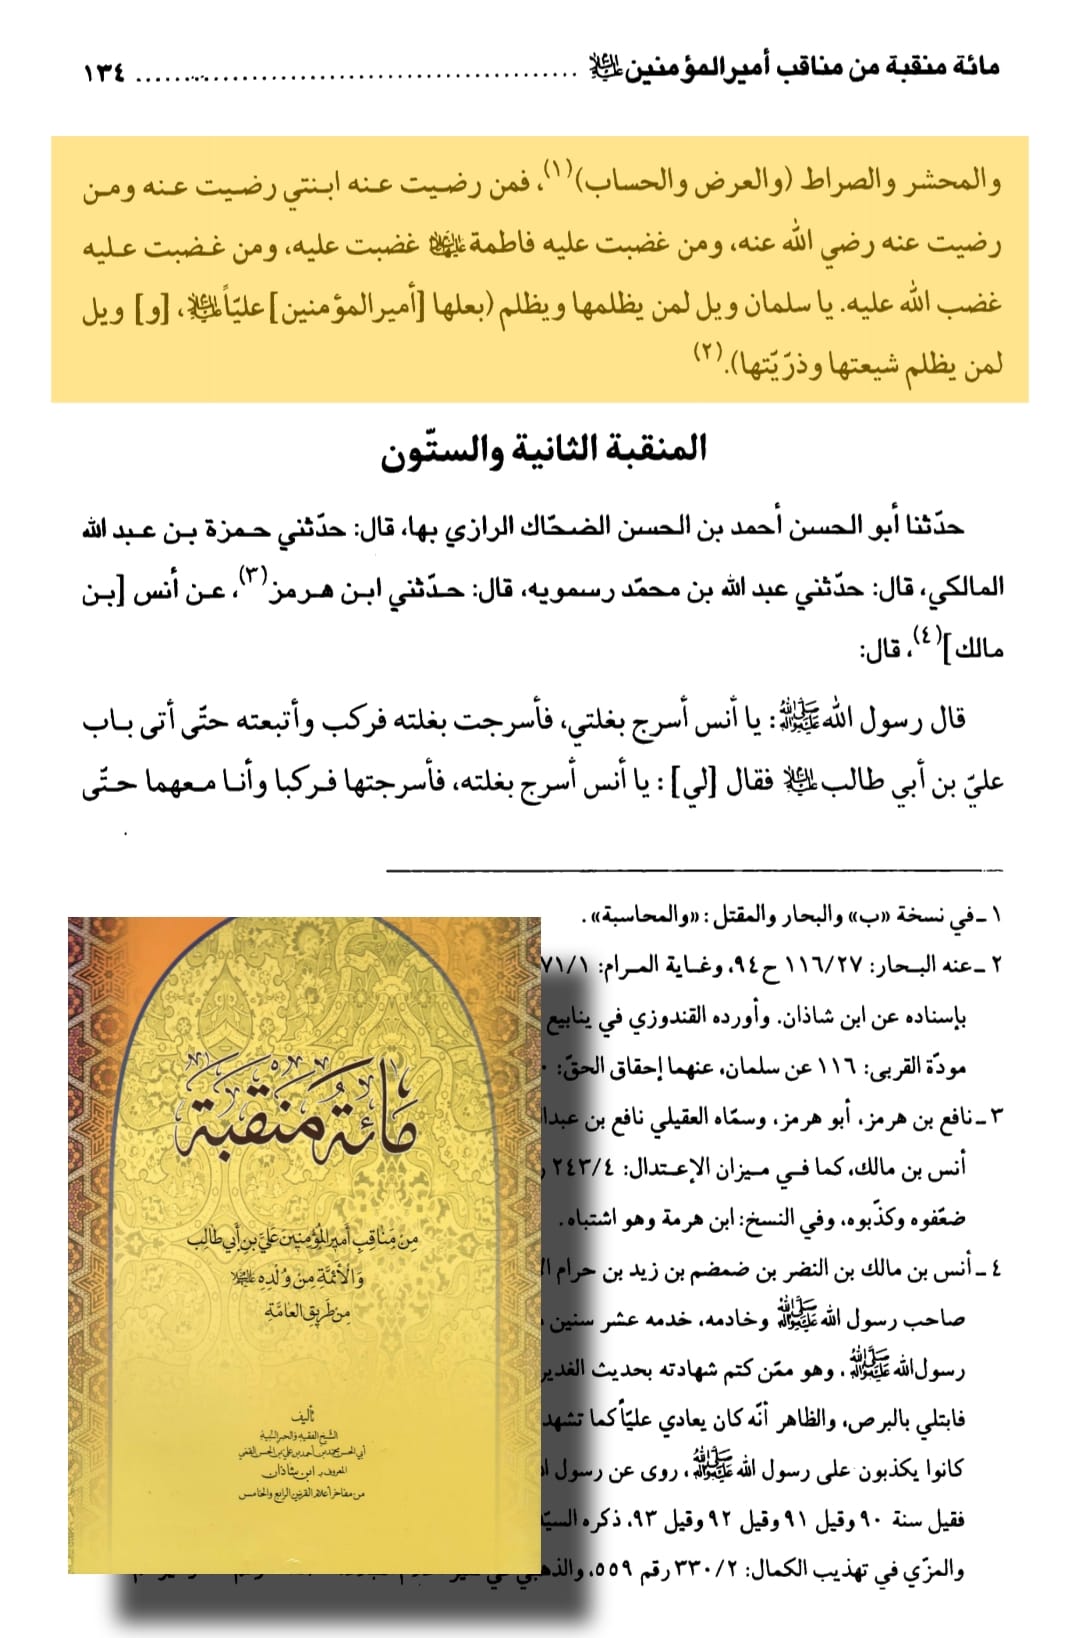 مائة منقبة من مناقب أميرالمؤمنين عليه السلام ........................................ ١٣٤
والمحشر والصراط (والعرض والحساب)(١)، فمن رضيت عنه ابنتي رضيت عنه ومن
رضيت عنه رضي الله عنه، ومن غضبت عليه فاطمة عليها السلام غضبت عليه، ومن غضبت عليه
غضب الله عليه. يا سلمان ويل لمن يظلمها ويظلم (بعلها [أميرالمؤمنين] عليّاً عليه السلام، [و] ويل
لمن يظلم شيعتها وذرّيّتها).(٢)
المنقبة الثانية والستّون
حدّثنا أبو الحسن أحمد بن الحسن الضحّاك الرازي بها، قال: حدّثني حمزة بن عبد الله
المالكي، قال: حدّثني عبد الله بن محمّد رسمويه، قال: حدّثني ابن هرمز(٣)، عن أنس [بن
مالك](٤)، قال:
قال رسول الله ﷺ: يا أنس أسرج بغلتي، فأسرجت بغلته فركب وأتبعته حتّى أتى باب
عليّ بن أبي طالب عليه السلام فقال [لي]: يا أنس أسرج بغلته، فأسرجتها فركبا وأنا معهما حتّى
١ ـ في نسخة «ب» والبحار والمقتل: «والمحاسبة».
٢ ـ عنه البحار: ١١٦/٢٧ ح ٩٤، وغاية المرام: ٧١/١
بإسناده عن ابن شاذان. وأورده القندوزي في ينابيع
مودّة القربى: ١١٦ عن سلمان، عنهما إحقاق الحقّ:
٣ ـ نافع بن هرمز، أبو هرمز، وسمّاه العقيلي نافع بن
أنس بن مالك، كما في ميزان الإعتدال: ٢٤٣/٤
ضعّفوه وكذّبوه، وفي النسخ: ابن هرمة وهو اشتباه.
٤ ـ أنس بن مالك بن النضر بن ضمضم بن زيد بن حرام
صاحب رسول الله ﷺ وخادمه، خدمه عشر سنين
رسول الله ﷺ، وهو ممّن كتم شهادته بحديث الغدير
فابتلي بالبرص، والظاهر أنّه كان يعادي عليّاً كما تشهد
كانوا يكذبون على رسول الله ﷺ، روى عن رسول
فقيل سنة ٩٠ وقيل ٩١ وقيل ٩٢ وقيل ٩٣، ذكره
والمزّي في تهذيب الكمال: ٣٣٠/٢ رقم ٥٥٩، والذهبي في
مائة منقبة
من مناقب أمير المؤمنين علي بن أبي طالب
والأئمة من ولده
من طريق العامة
تأليف
الشيخ الفقيه والحبر النبيه
أبي الحسن محمد بن أحمد بن علي بن الحسن القمي
المعروف بـ ابن شاذان
من مفاخر أعلام القرنين الرابع والخامس